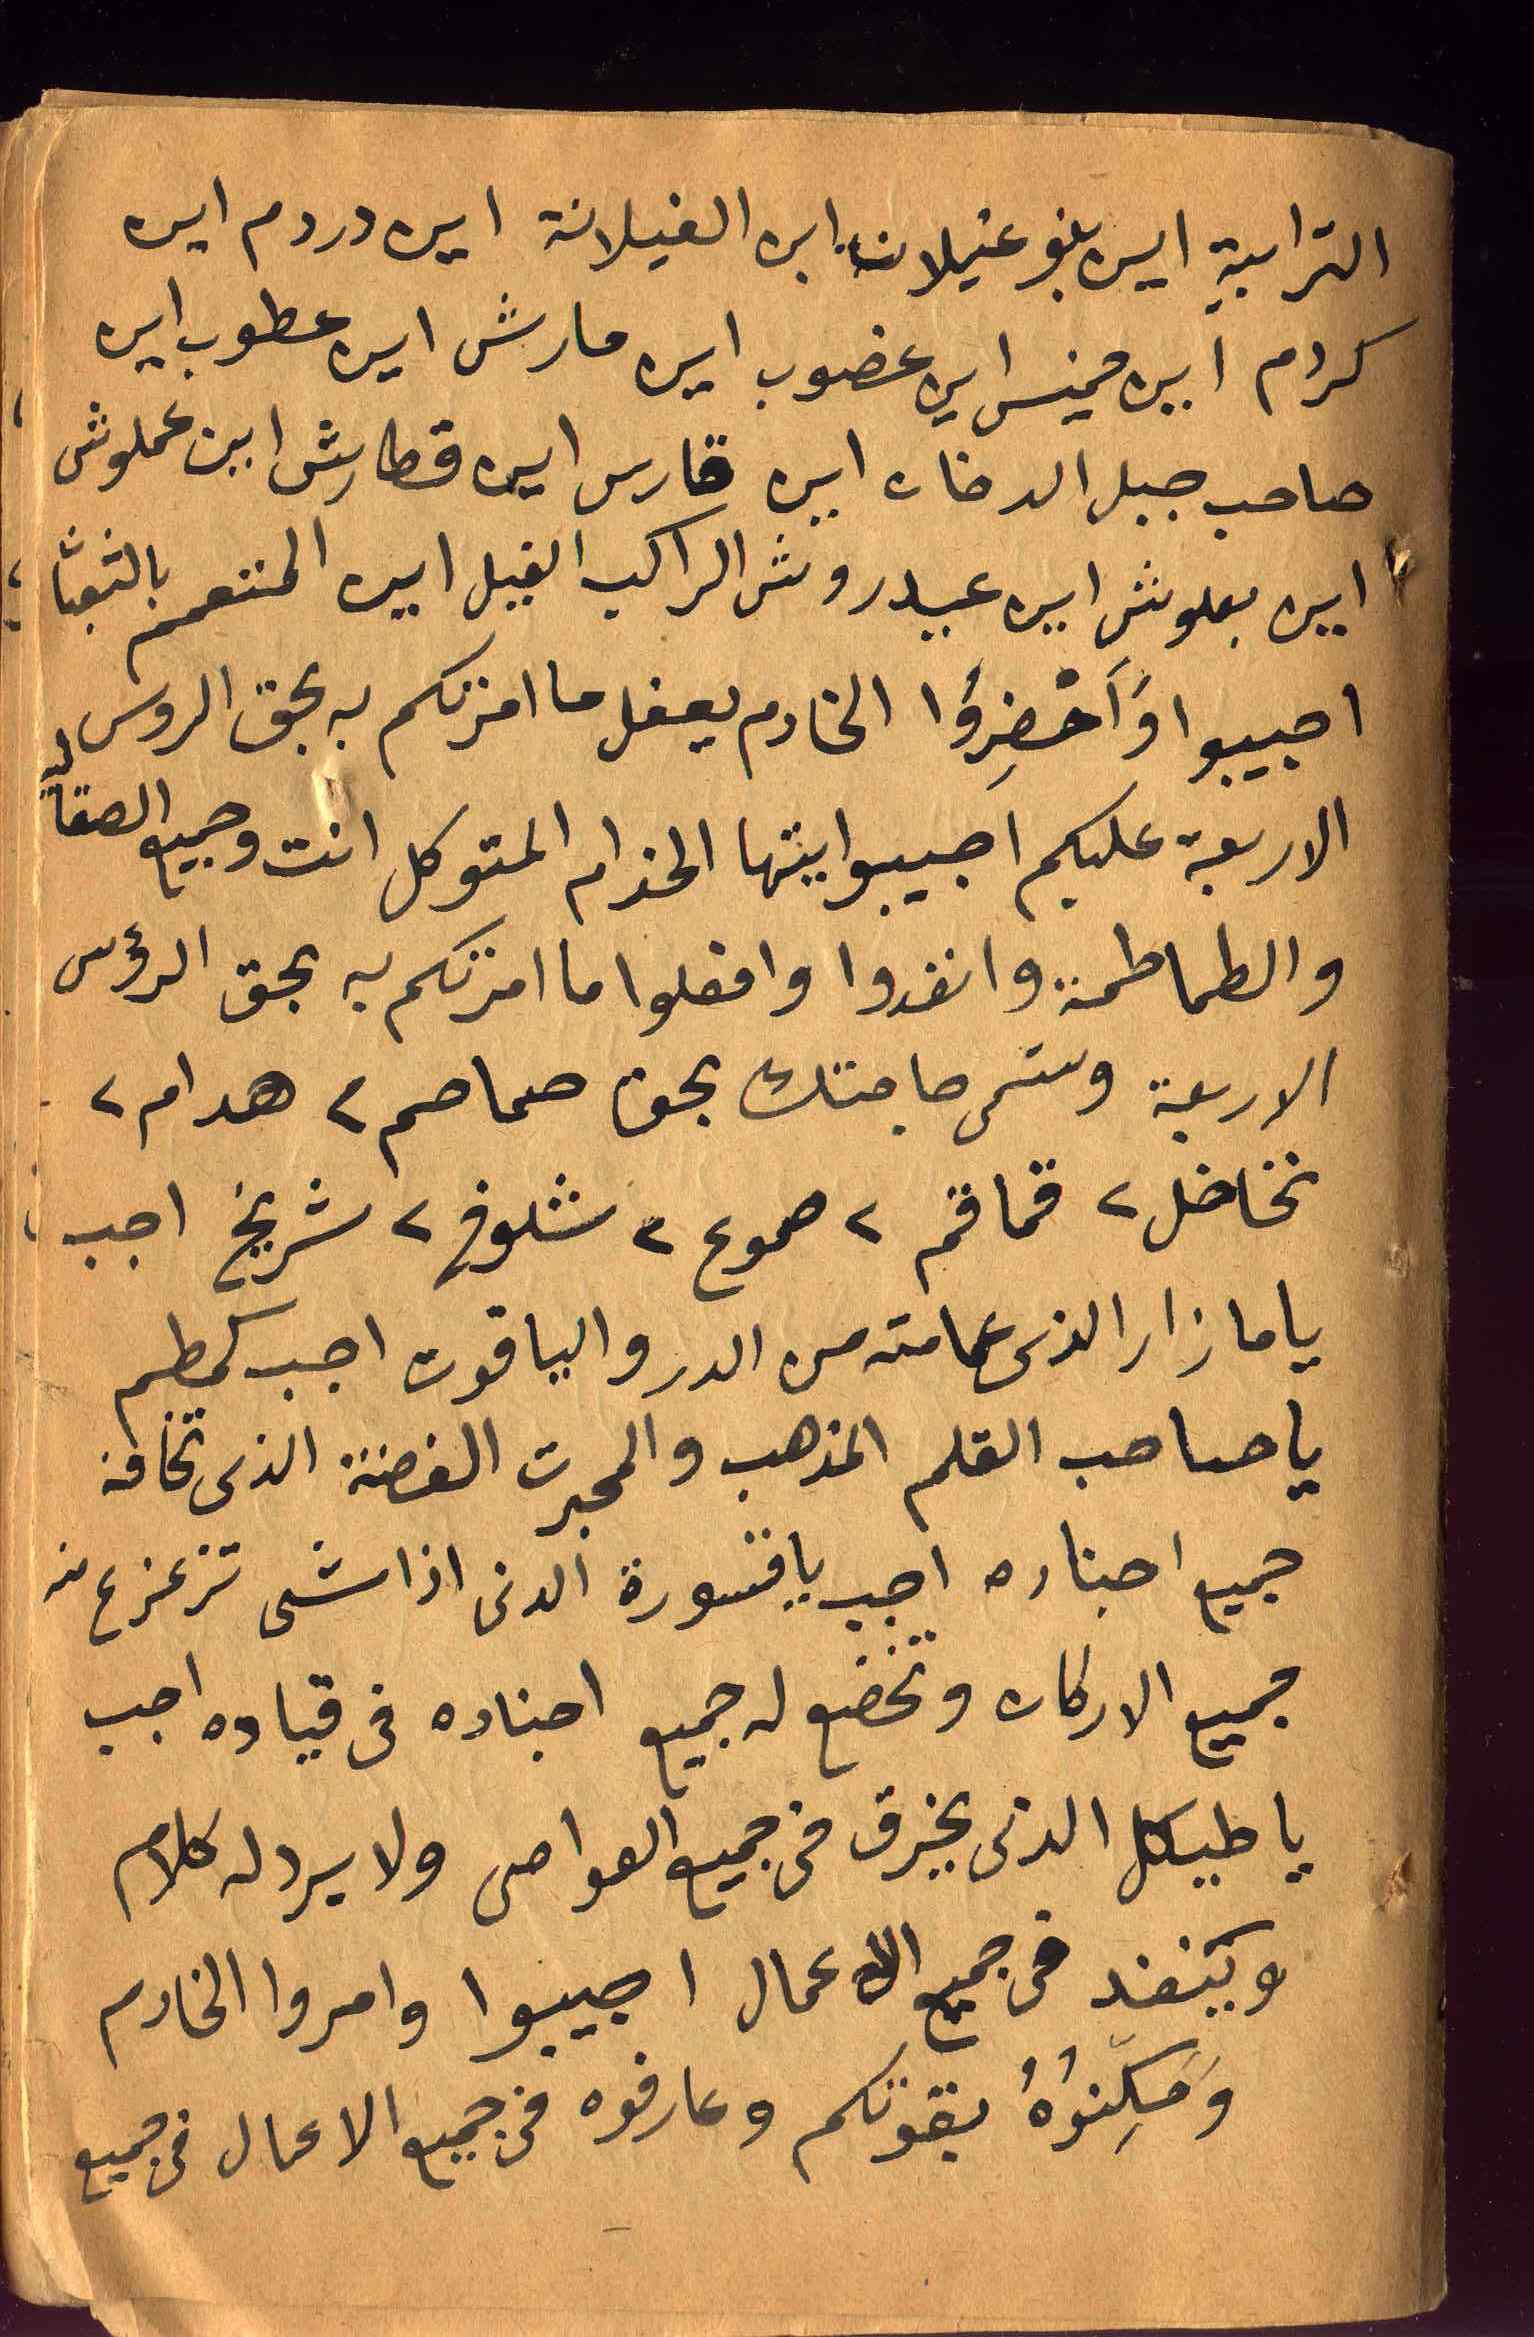 الترابية اين بنو غيلان اين الغيلانة اين دردم اين
كردم ايين ميمنس اين عضوب اين مارش اين عطوب اين
صاحب جبل الدخان ايين قارس اين قطارش ايين عملوش
ايين بعلوش ايين عبيدروش الراكب الفيل ايين المتعمم بالثعبان
اجيبوا وَاَحْضِرُوا الخادم يعفل ما امرتكم به بحق الروس
الاربعة عليكم اجيبوا ايتها الخدام المتوكل انت وجميع
والطماطمة وانفدوا وافعلوا ما امرتكم به بحق الرؤس
الاربعة وسمى حاجتك بحق صماصم ٢ هدام ٢
نخاخل ٢ قماقم ٢ صموع ٢ شلوخ ٢ شريخ اجب
يا مازار الذى عمامته من الدر والياقوت اجب كمطم
يا صاحب القلم المذهب والمحبرت الفضة الذى تخافه
جميع اجناده اجب يا قسورة الذى اذا مشى تزعزع منه
جميع الاركان وتخضع له جميع اجناده فى قياده اجب
يا طيكل الذى يخرق فى جميع العواصى ولا يرد له كلام
وينفد فى جميع الاعمال اجيبوا وامروا الخادم
وَمَكِّنُوْهُ بقوتكم وعارفوه فى جميع الاعمال فى جميع